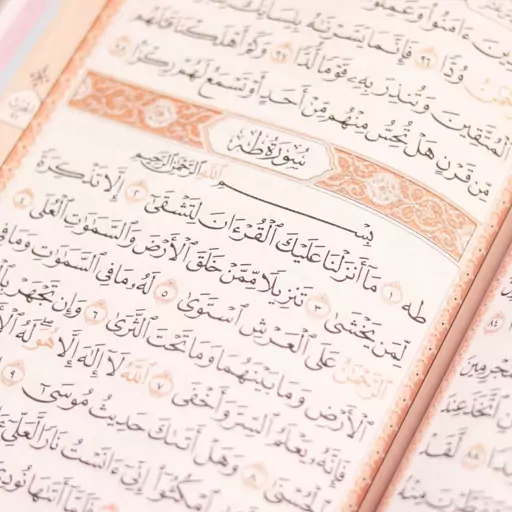 ءَامَنُوا۟ وَعَمِلُوا۟
وُدًّا ٩٦ فَإِنَّمَا يَسَّرْنَٰهُ بِلِسَانِكَ
ٱلْمُتَّقِينَ وَتُنذِرَ بِهِۦ قَوْمًا لُّدًّا ٩٧ وَكَمْ أَهْلَكْنَا قَبْلَهُم
مِّن قَرْنٍ هَلْ تُحِسُّ مِنْهُم مِّنْ أَحَدٍ أَوْ تَسْمَعُ لَهُمْ رِكْزًۢا ٩٨
سُورَةُ طه
بِسْمِ ٱللَّهِ ٱلرَّحْمَٰنِ ٱلرَّحِيمِ
طه ١ مَآ أَنزَلْنَا عَلَيْكَ ٱلْقُرْءَانَ لِتَشْقَىٰٓ ٢ إِلَّا تَذْكِرَةً
لِّمَن يَخْشَىٰ ٣ تَنزِيلًا مِّمَّنْ خَلَقَ ٱلْأَرْضَ وَٱلسَّمَٰوَٰتِ ٱلْعُلَى ٤
ٱلرَّحْمَٰنُ عَلَى ٱلْعَرْشِ ٱسْتَوَىٰ ٥ لَهُۥ مَا فِى ٱلسَّمَٰوَٰتِ وَمَا فِى
ٱلْأَرْضِ وَمَا بَيْنَهُمَا وَمَا تَحْتَ ٱلثَّرَىٰ ٦ وَإِن تَجْهَرْ
فَإِنَّهُۥ يَعْلَمُ ٱلسِّرَّ وَأَخْفَى ٧ ٱللَّهُ لَآ إِلَٰهَ إِلَّا هُوَ لَهُ
ٱلْحُسْنَىٰ ٨ وَهَلْ أَتَىٰكَ حَدِيثُ مُوسَىٰٓ ٩
ٱمْكُثُوٓا۟ إِنِّىٓ ءَانَسْتُ نَارًا لَّعَلِّىٓ
فَلَمَّآ أَتَىٰهَا نُودِىَ